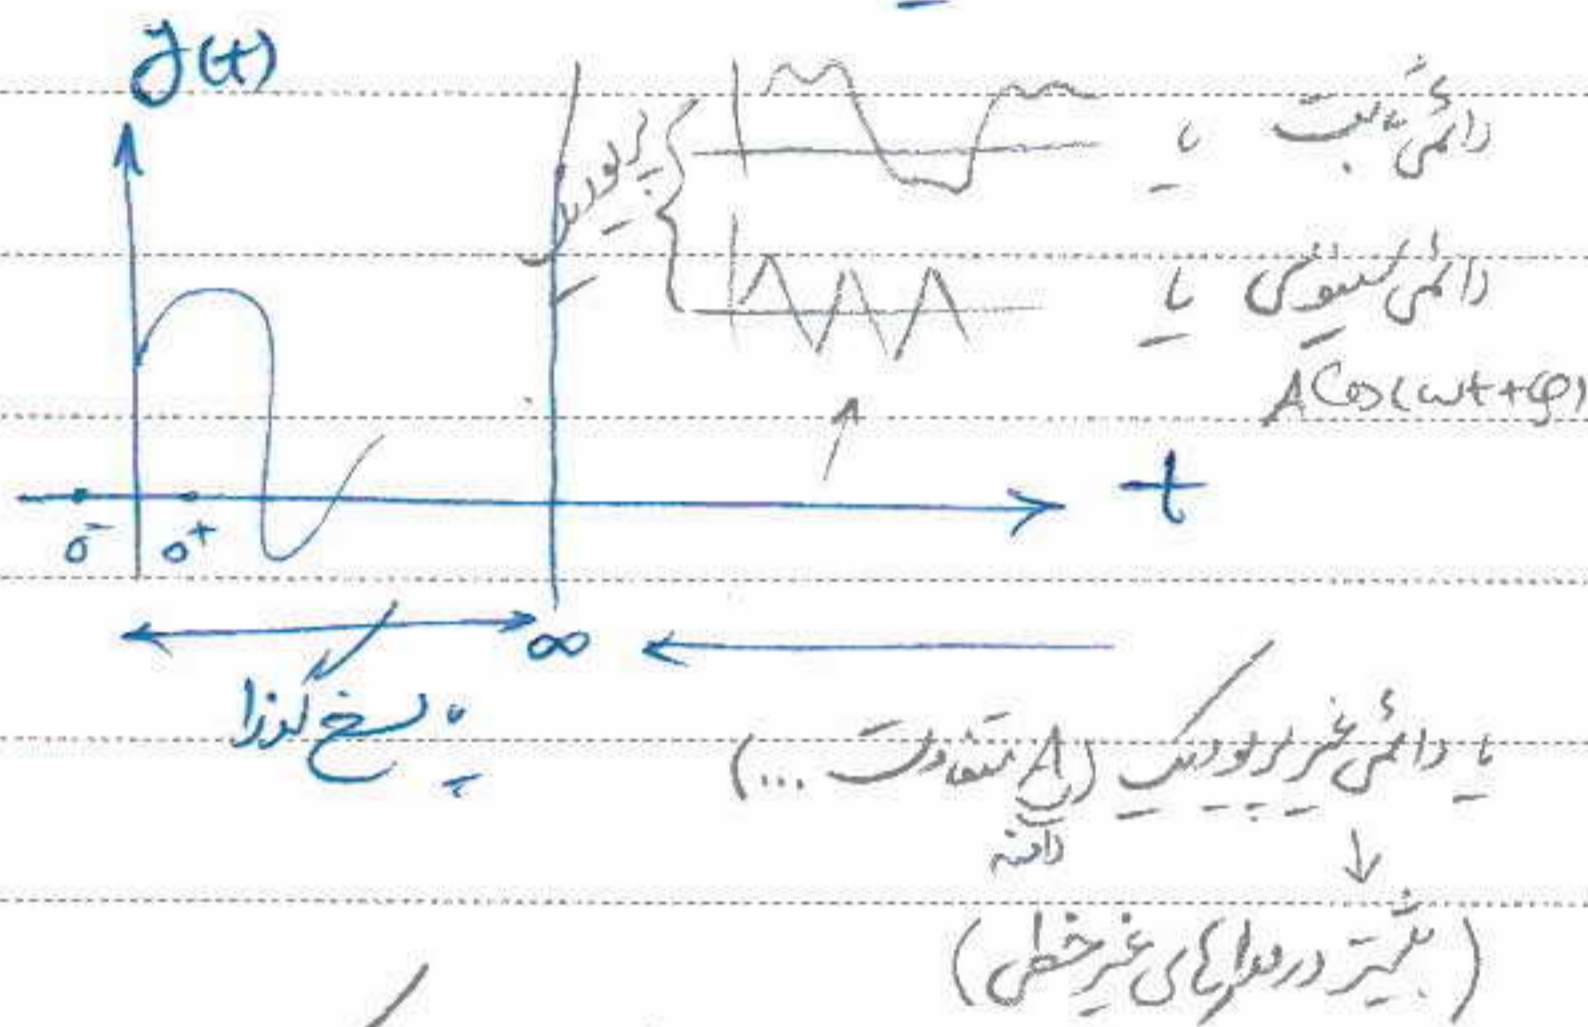 y(t)
دائمی ثابت یا
پریودیک
دائمی سینوسی یا
A Cos(ωt+φ)
t
0⁻ 0⁺
∞
پاسخ گذرا
یا دائمی غیر پریودیک (A متفاوت ...)
دامنه
(بیشتر در مدارهای غیرخطی)